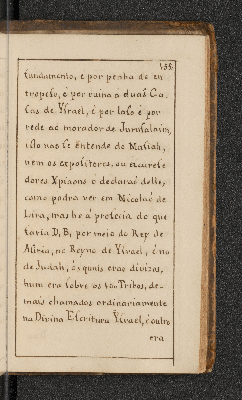 155.
fundamento, é por penha de en
tropeso, é por ruina a duas Ca-
sas de Ysrael, é por laso é por
rede ao morador de Jerusalaim,
isto nao se entende do Masiah,
nem os expositores, ou
dores Xptaons o declarao delle,
como podra ver em Nicolao de
Lira, mas he á profecia do que
faria D, B, por meio do Rey de
Asiria, no Reyno de Ysrael, é no
de Judah, ôs quais erao divizos,
hum era sobre os 10 Tribos, de-
mais chamados ordinariamente
na Divina Escritura Ysrael, é outro
era